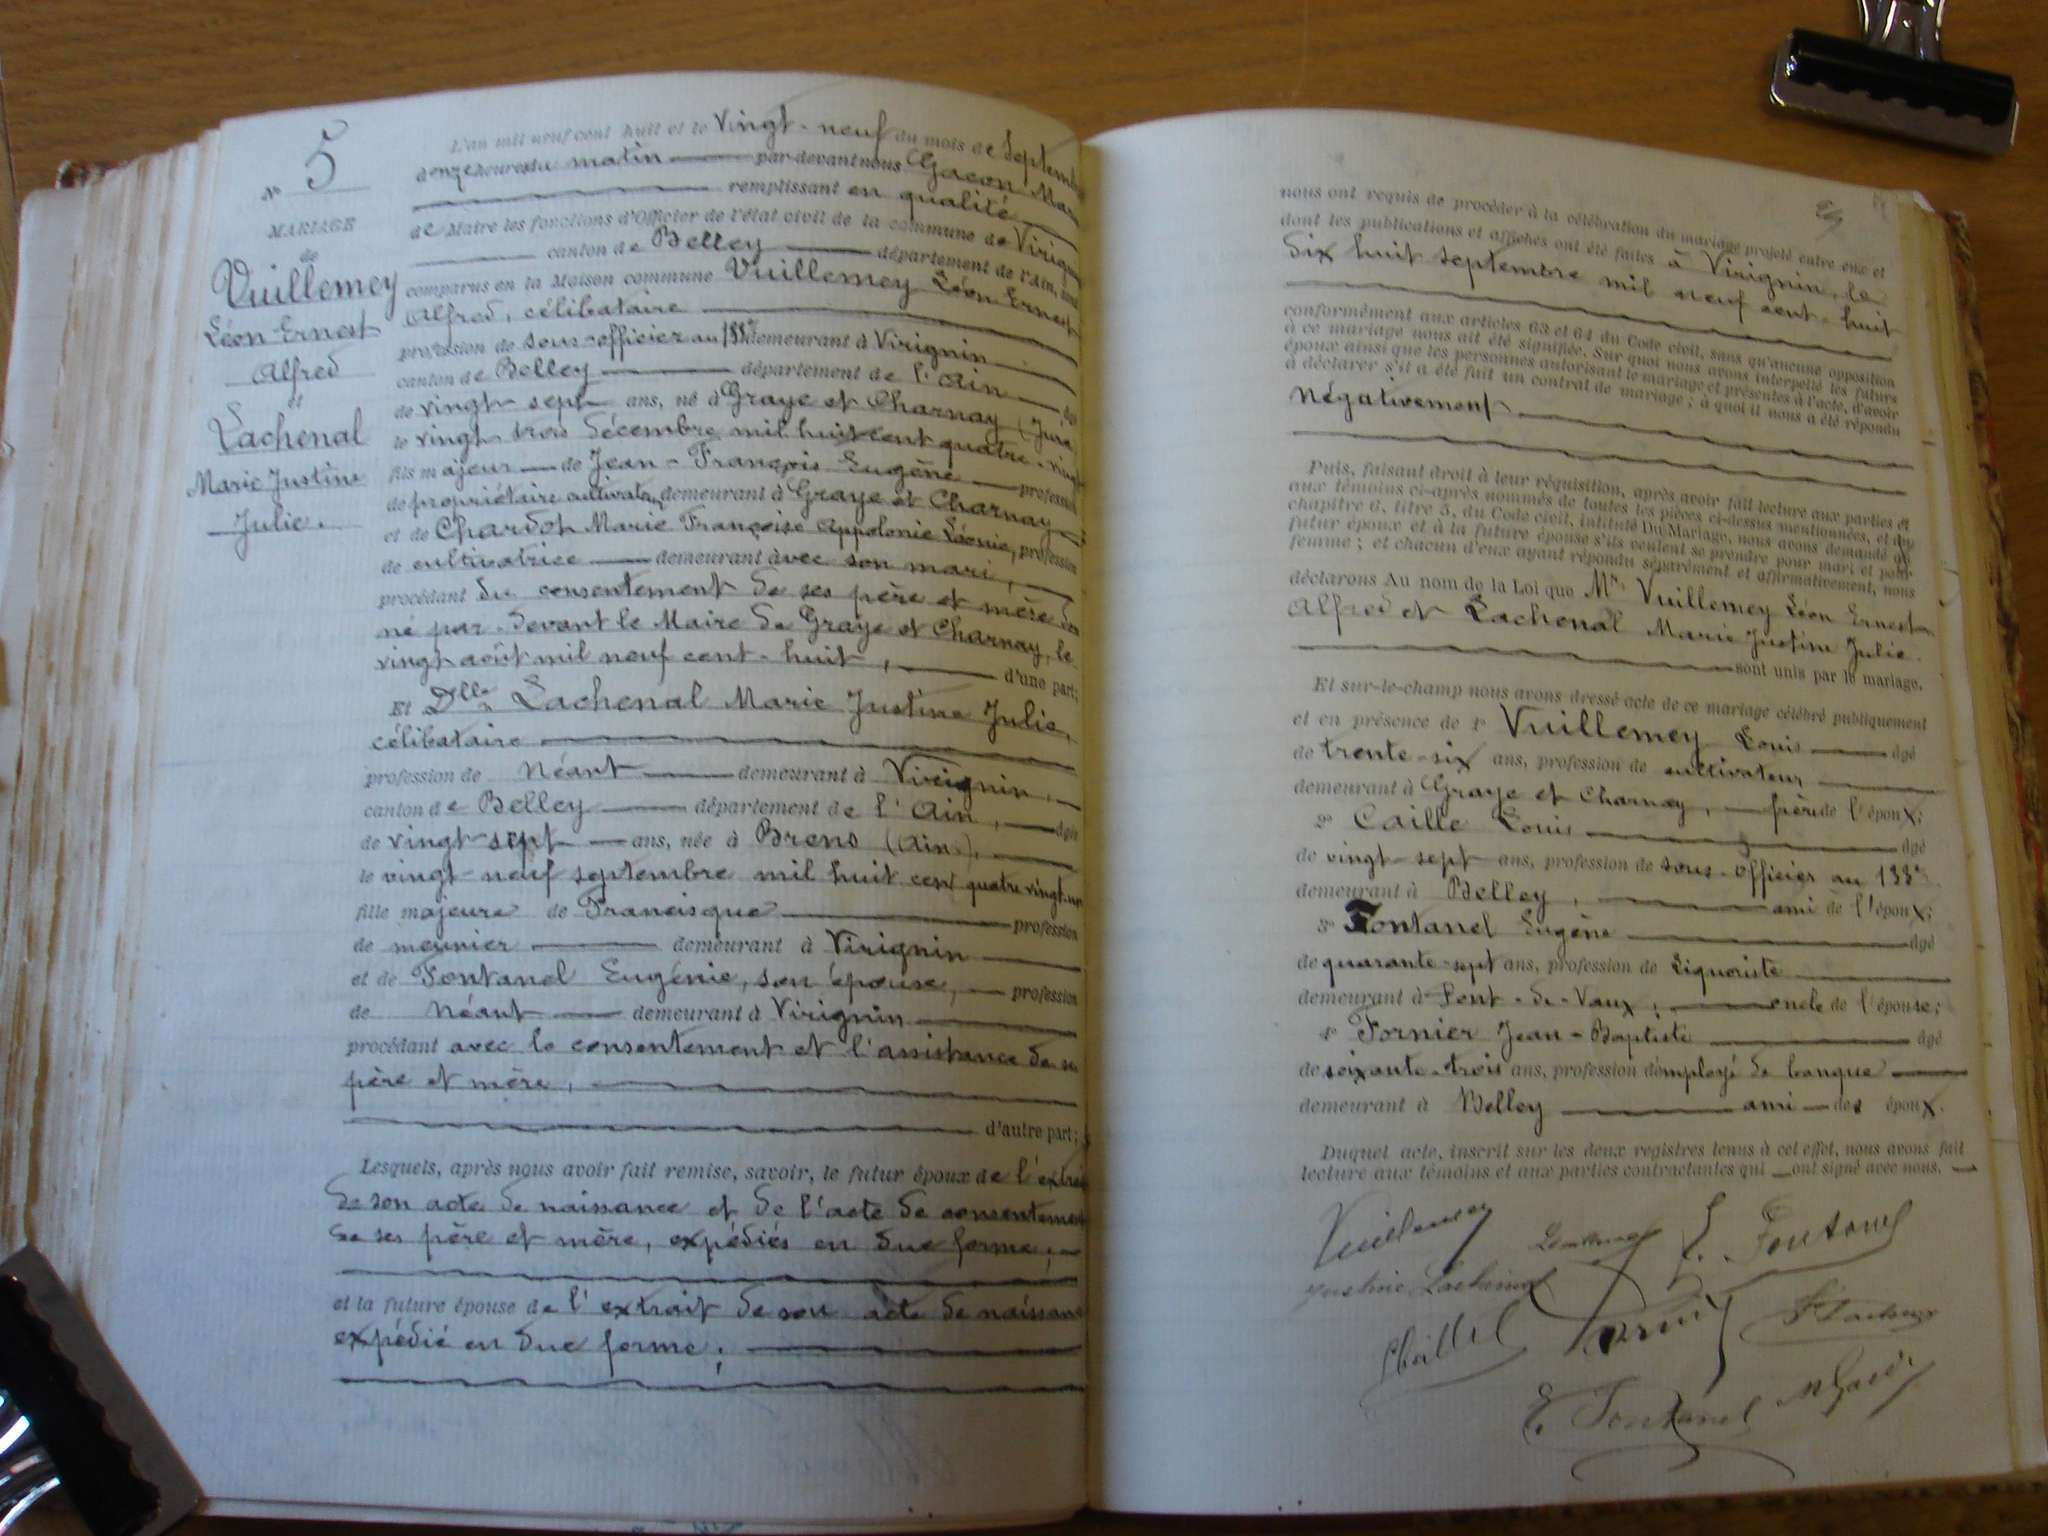 N° 5
MARIAGE
de
Vuillemey
Léon Ernest
Alfred
et
Lachenal
Marie Justine
Julie.
L'an mil neuf cent huit et le vingt-neuf du mois de septembre
à onze heures du matin par-devant nous Gacon
remplissant en qualité
de Maire les fonctions d'Officier de l'état civil de la commune de Virignin
canton de Belley département de l'Ain, sont
comparus en la Maison commune Vuillemey Léon Ernest
Alfred, célibataire
profession de sous-officier au 133e demeurant à Virignin
canton de Belley département de l'Ain âgé
de vingt-sept ans, né à Graye et Charnay (Jura
le vingt trois décembre mil huit cent quatre-vingt
fils majeur de Jean-François Eugène profession
de propriétaire cultivateur, demeurant à Graye et Charnay
et de Chardot Marie Françoise Appolonie Léonie, profession
de cultivatrice demeurant avec son mari,
procédant du consentement de ses père et mère don
né par-devant le Maire de Graye et Charnay, le
vingt août mil neuf cent-huit, d'une part;
Et Dlle Lachenal Marie Justine Julie,
célibataire
profession de Néant demeurant à Virignin,
canton de Belley département de l'Ain, âgée
de vingt-sept ans, née à Brens (Ain),
le vingt-neuf septembre mil huit cent quatre vingt-un
fille majeure de Francisque profession
de meunier demeurant à Virignin
et de Fontanel Eugénie, son épouse, profession
de Néant demeurant à Virignin
procédant avec le consentement et l'assistance de ses
père et mère,
d'autre part;
Lesquels, après nous avoir fait remise, savoir, le futur époux de l'extrait
de son acte de naissance et de l'acte de consentement
de ses père et mère, expédiés en due forme;
et la future épouse de l'extrait de son acte de naissance
expédié en due forme;
29
nous ont requis de procéder à la célébration du mariage projeté entre eux et
dont les publications et affiches ont été faites à Virignin, le
six huit septembre mil neuf cent-huit
conformément aux articles 63 et 64 du Code civil, sans qu'aucune opposition
à ce mariage nous ait été signifiée. Sur quoi nous avons interpellé les futurs
époux ainsi que les personnes autorisant le mariage et présentes à l'acte, d'avoir
à déclarer s'il a été fait un contrat de mariage; à quoi il nous a été répondu
négativement
Puis, faisant droit à leur réquisition, après avoir fait lecture aux parties et
aux témoins ci-après nommés de toutes les pièces ci-dessus mentionnées, et du
chapitre 6, titre 5, du Code civil, intitulé Du Mariage, nous avons demandé au
futur époux et à la future épouse s'ils veulent se prendre pour mari et pour
femme; et chacun d'eux ayant répondu séparément et affirmativement, nous
déclarons Au nom de la Loi que Mr. Vuillemey Léon Ernest
Alfred et Lachenal Marie Justine Julie.
sont unis par le mariage.
Et sur-le-champ nous avons dressé acte de ce mariage célébré publiquement
et en présence de 1° Vuillemey Louis âgé
de trente-six ans, profession de cultivateur
demeurant à Graye et Charnay, frère de l'époux;
2° Caille Louis âgé
de vingt-sept ans, profession de sous-officier au 133e
demeurant à Belley, ami de l'époux;
3° Fontanel Eugène âgé
de quarante-sept ans, profession de Liquoriste
demeurant à Pont-de-Vaux, oncle de l'épouse;
4° Fornier Jean-Baptiste âgé
de soixante-trois ans, profession d'employé de banque
demeurant à Belley ami des époux.
Duquel acte, inscrit sur les deux registres tenus à cet effet, nous avons fait
lecture aux témoins et aux parties contractantes qui ont signé avec nous.
Vuillemey
E. Fontanel
Justine Lachenal
E. Fontanel